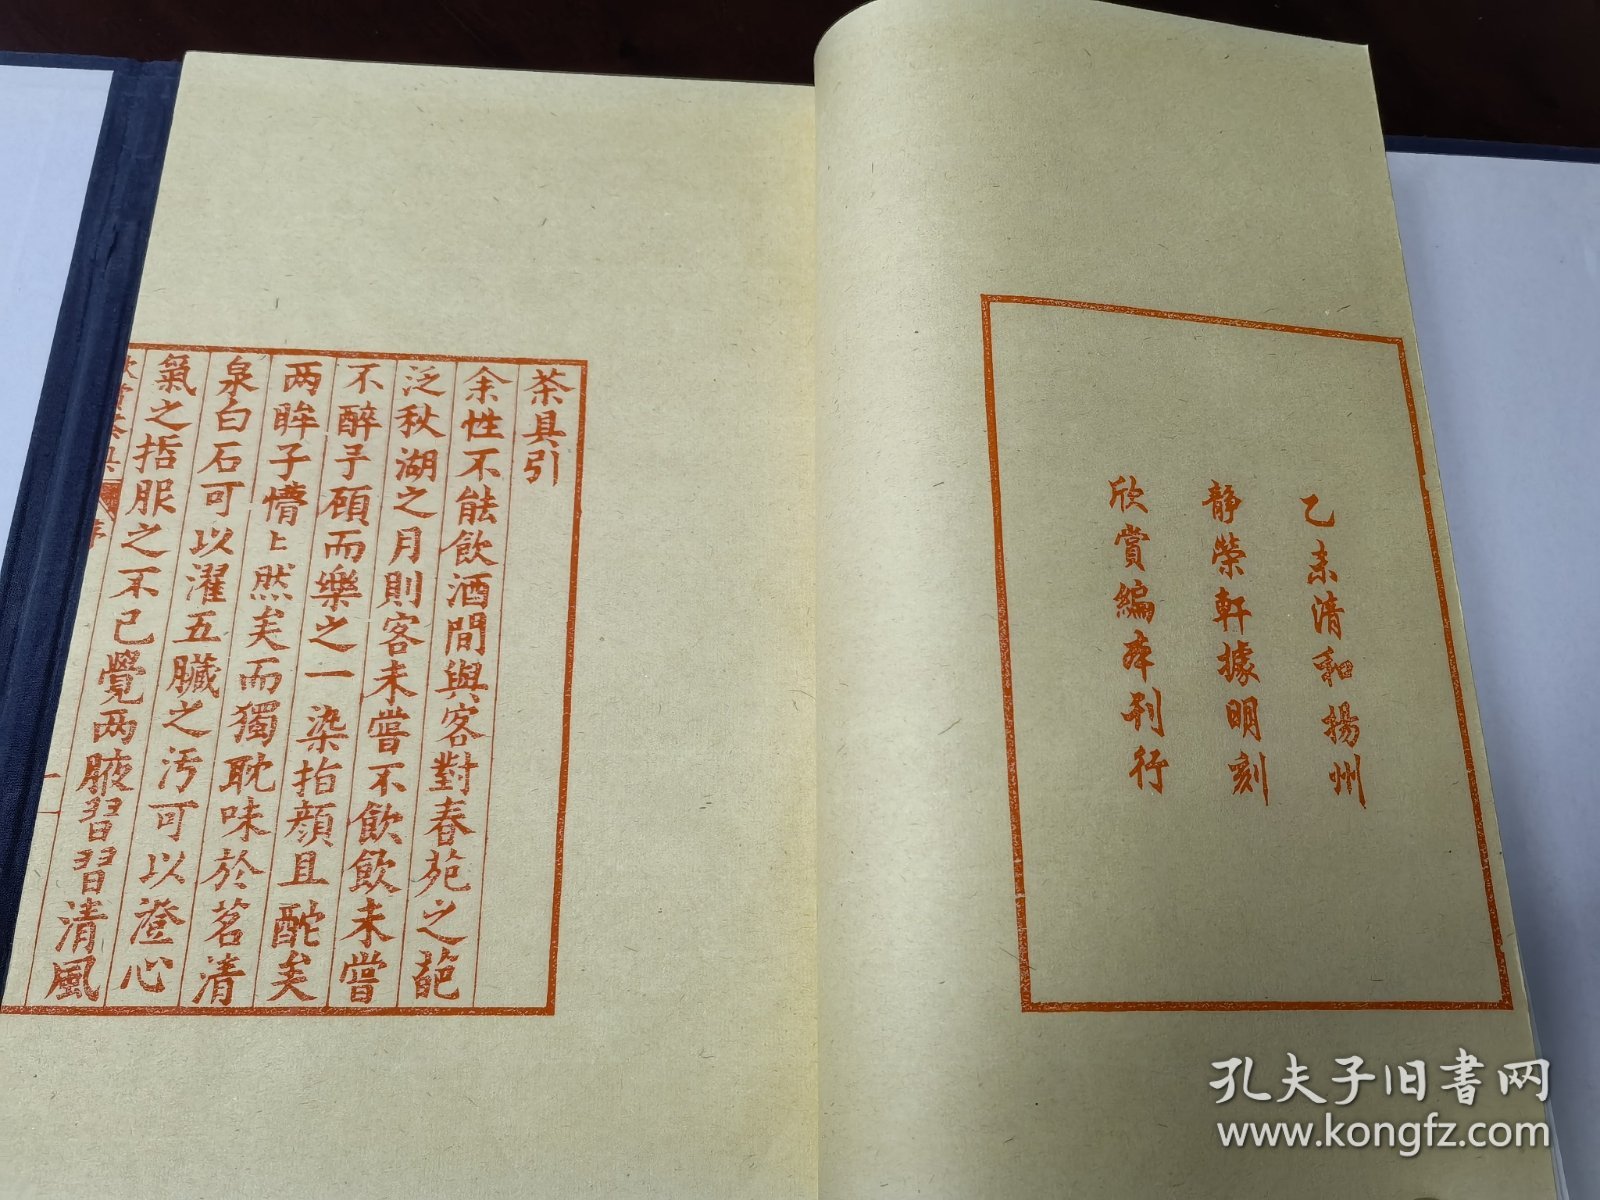 乙未清和揚州
靜榮軒據明刻
欣賞編本刊行
茶具引
余性不能飲酒間與客對春苑之葩
泛秋湖之月則客未嘗不飲飲未嘗
不醉予顧而樂之一染指顏且酡矣
两眸子懵〻然矣而獨耽味於茗清
泉白石可以濯五臟之污可以澄心
氣之哲服之不已覺两腋習習清風
欣賞茶具
序
一
孔夫子旧书网
www.kongfz.com